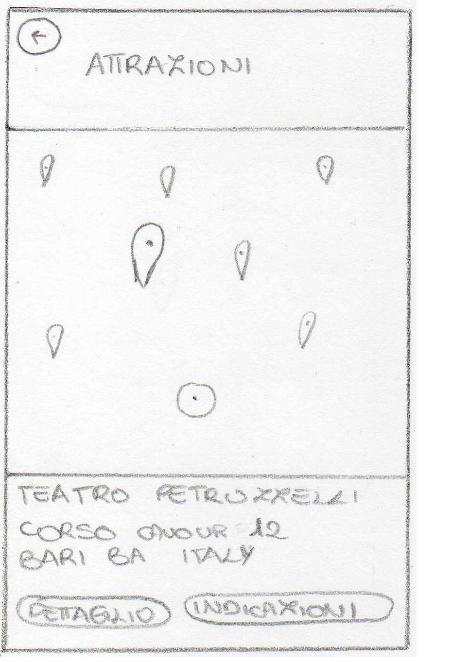 ATTRAZIONI
TEATRO PETRUZZELLI
CORSO CAVOUR 12
BARI BA ITALY
DETTAGLIO INDICAZIONI